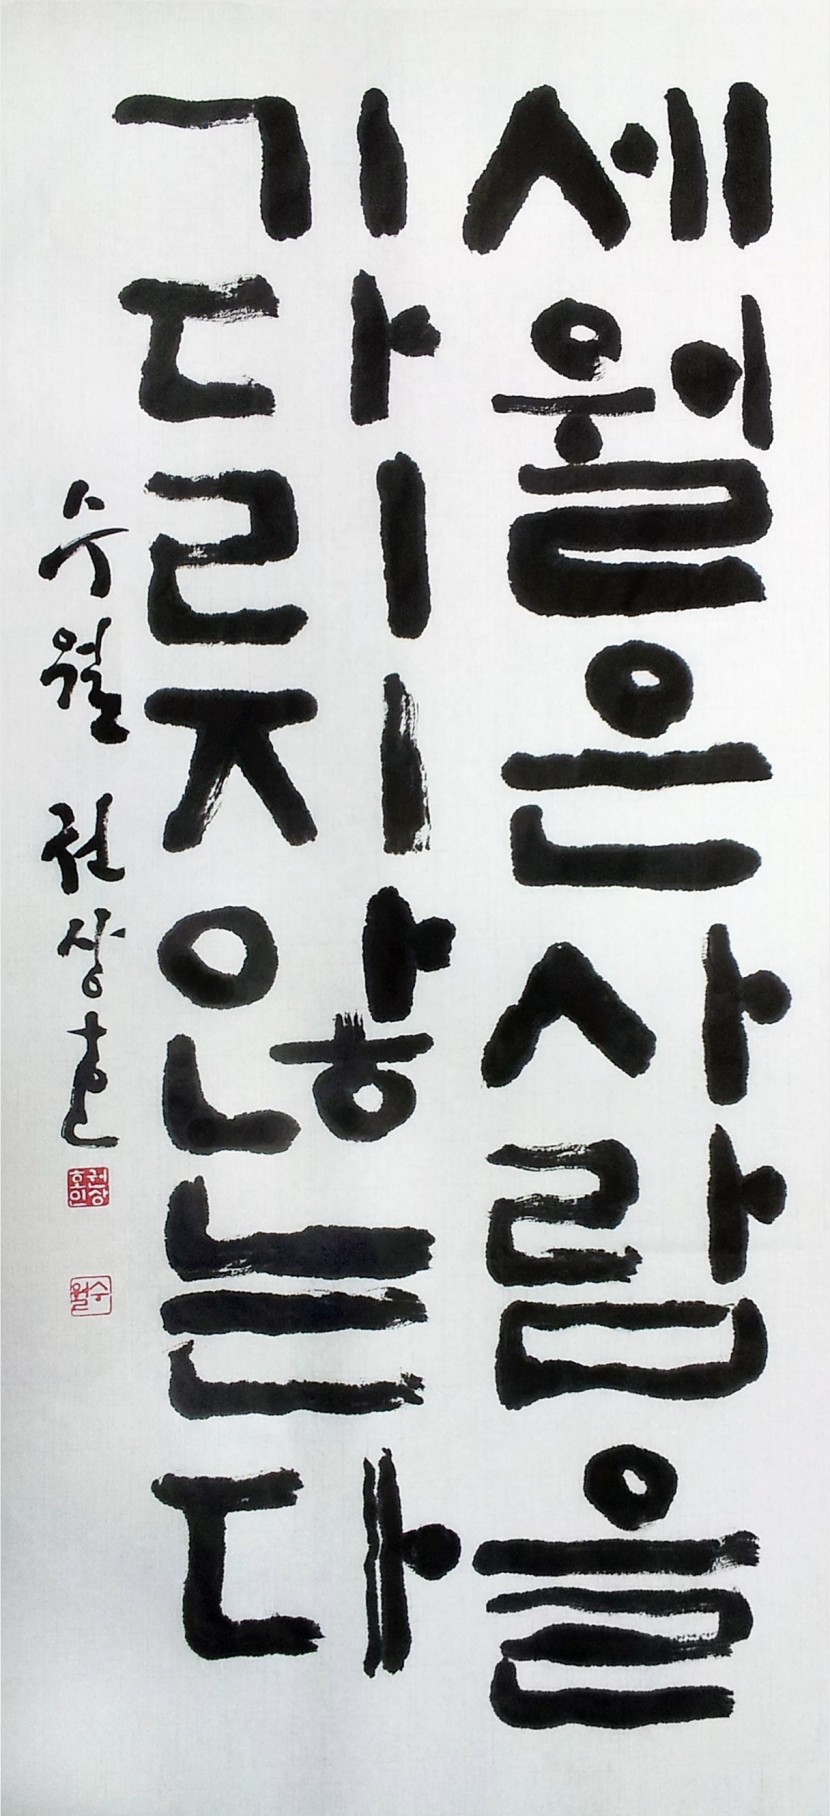 세월은사람을
기다리지않는다
수월 권상호
권상호인
수월